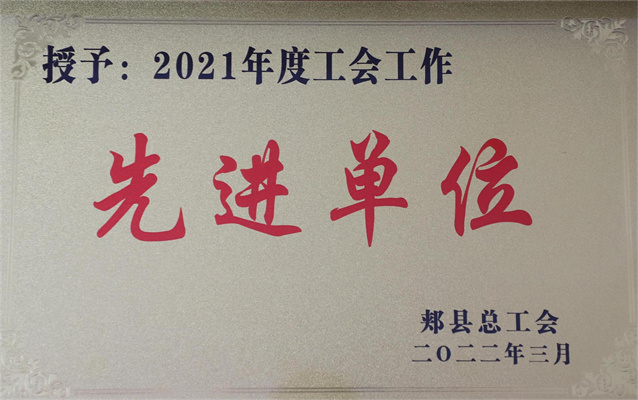 授予：2021年度工会工作
先进单位
郏县总工会
二〇二二年三月